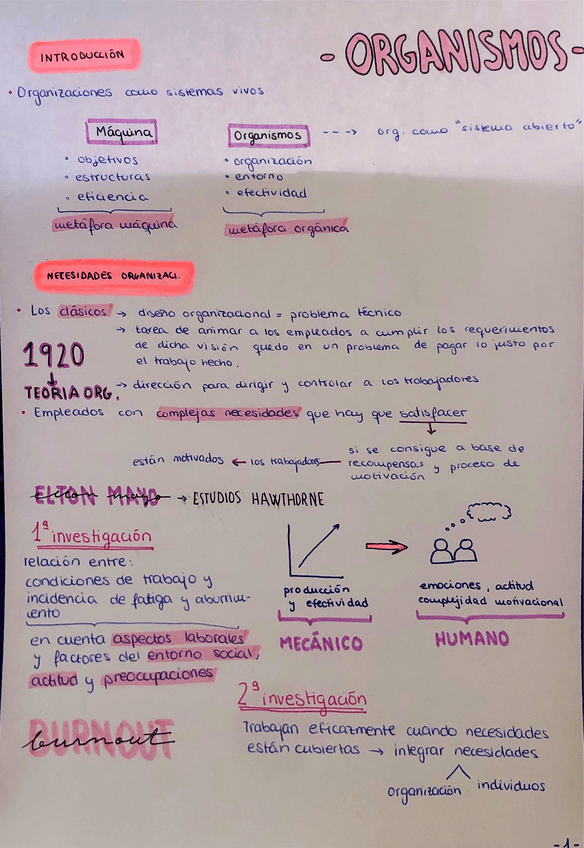 INTRODUCCIÓN
- ORGANISMOS-
• Organizaciones como sistemas vivos
Máquina
• objetivos
• estructuras
• eficiencia
metáfora máquina
Organismos ---> org. como "sistema abierto"
• organización
• entorno
• efectividad
metáfora orgánica
NECESIDADES ORGANIZACI.
• Los clásicos → diseño organizacional = problema técnico
→ tarea de animar a los empleados a cumplir los requerimentos
de dicha visión quedo en un problema de pagar lo justo por
el trabajo hecho.
1920
↓
TEORÍA ORG.
→ dirección para dirigir y controlar a los trabajadores
• Empleados con complejas necesidades que hay que satisfacer
↓
si se consigue a base de
recompensas y proceso de
motivación
están motivados ← los trabajadores
ELTON MAYO → ESTUDIOS HAWTHORNE
elton mayo
1ª investigación
relación entre:
condiciones de trabajo y
incidencia de fatiga y aburrimi-
iento
en cuenta aspectos laborales
y factores del entorno social,
actitud y preocupaciones
producción
y efectividad
MECÁNICO
emociones, actitud
complejidad motivacional
HUMANO
BURNOUT
burnout
2ª investigación
Trabajan eficazmente cuando necesidades
están cubiertas → integrar necesidades
organización individuos
-1-